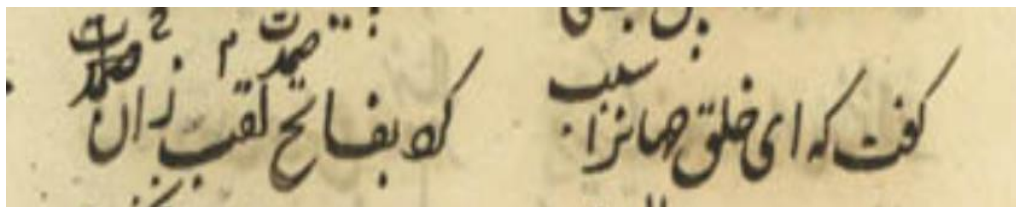 کفت که ای خلق جهانرا سبب
کرد بفاتح لقب زان صمدت